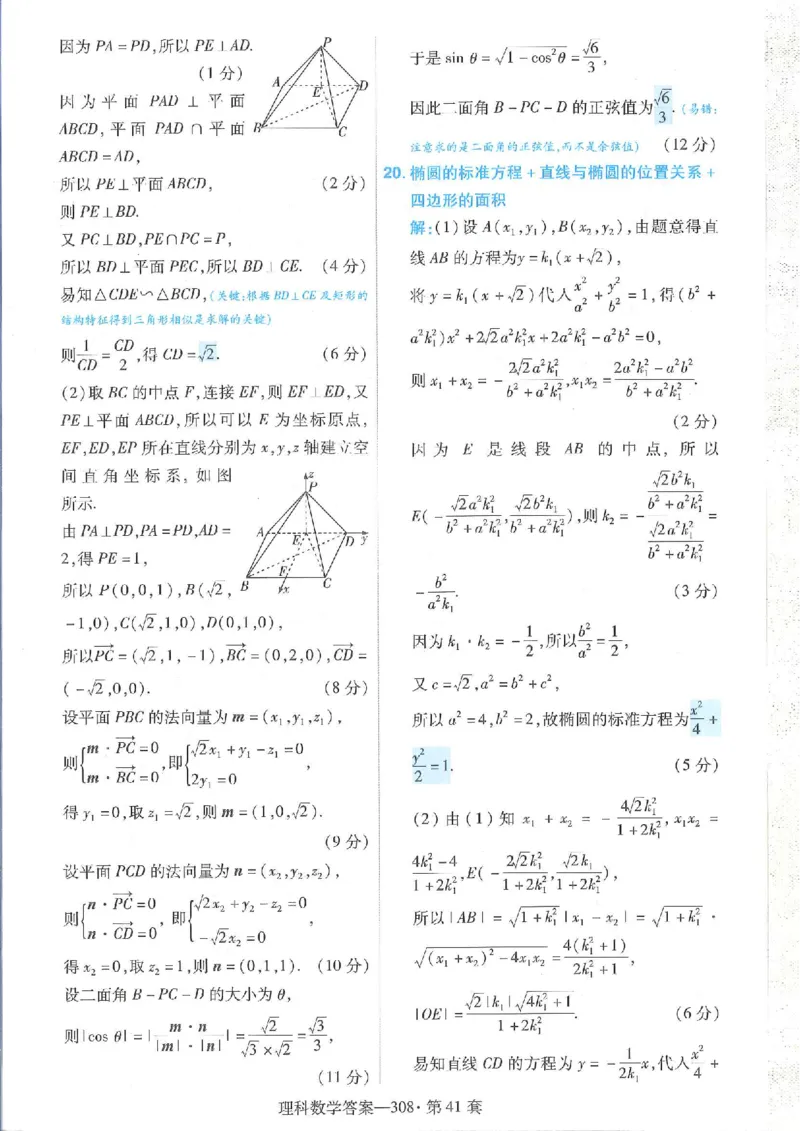 因为 PA=PD,所以 PE⊥AD.
(1分)
因为平面 PAD ⊥ 平面
ABCD,平面 PAD ∩ 平面
ABCD=AD,
所以 PE⊥平面 ABCD, (2分)
则 PE⊥BD.
又 PC⊥BD,PE∩PC=P,
所以 BD⊥平面 PEC,所以 BD⊥CE. (4分)
易知△CDE∽△BCD,(关键:根据 BD⊥CE 及矩形的
结构特征得到三角形相似是求解的关键)
则 1/CD = CD/2,得 CD=√2. (6分)
(2)取 BC 的中点 F,连接 EF,则 EF⊥ED,又
PE⊥平面 ABCD,所以可以 E 为坐标原点,
EF,ED,EP 所在直线分别为 x,y,z 轴建立空
间直角坐标系,如图
所示.
由 PA⊥PD,PA=PD,AD=
2,得 PE=1,
所以 P(0,0,1),B(√2,
-1,0),C(√2,1,0),D(0,1,0),
所以PC→=(√2,1,-1),BC→=(0,2,0),CD→=
(-√2,0,0). (8分)
设平面 PBC 的法向量为 m=(x₁,y₁,z₁),
则{m·PC→=0, m·BC→=0,即{√2x₁+y₁-z₁=0, 2y₁=0,
得 y₁=0,取 z₁=√2,则 m=(1,0,√2).
(9分)
设平面 PCD 的法向量为 n=(x₂,y₂,z₂),
则{n·PC→=0, n·CD→=0,即{√2x₂+y₂-z₂=0, -√2x₂=0,
得 x₂=0,取 z₂=1,则 n=(0,1,1). (10分)
设二面角 B-PC-D 的大小为 θ,
则|cos θ|=|m·n/(|m|·|n|)|=√2/(√3×√2)=√3/3,
(11分)
P
A
E
D
B
C
z
P
A
E
D y
B
F
C
x
于是 sin θ=√(1-cos²θ)=√6/3,
因此二面角 B-PC-D 的正弦值为√6/3.(易错:
注意求的是二面角的正弦值,而不是余弦值) (12分)
20.椭圆的标准方程+直线与椭圆的位置关系+
四边形的面积
解:(1)设 A(x₁,y₁),B(x₂,y₂),由题意得直
线 AB 的方程为y=k₁(x+√2),
将 y=k₁(x+√2)代入x²/a²+y²/b²=1,得(b²+
a²k₁²)x²+2√2a²k₁²x+2a²k₁²-a²b²=0,
则 x₁+x₂=-2√2a²k₁²/(b²+a²k₁²),x₁x₂=(2a²k₁²-a²b²)/(b²+a²k₁²).
(2分)
因为 E 是线段 AB 的中点,所以
E(-√2a²k₁²/(b²+a²k₁²),√2b²k₁/(b²+a²k₁²)),则 k₂=-(√2b²k₁/(b²+a²k₁²))/(√2a²k₁²/(b²+a²k₁²))=
-b²/(a²k₁). (3分)
因为 k₁·k₂=-1/2,所以b²/a²=1/2,
又 c=√2,a²=b²+c²,
所以 a²=4,b²=2,故椭圆的标准方程为x²/4+
y²/2=1. (5分)
(2)由(1)知 x₁+x₂=-4√2k₁²/(1+2k₁²),x₁x₂=
(4k₁²-4)/(1+2k₁²),E(-2√2k₁²/(1+2k₁²),√2k₁/(1+2k₁²)),
所以|AB|=√(1+k₁²)|x₁-x₂|=√(1+k₁²)·
√((x₁+x₂)²-4x₁x₂)=4(k₁²+1)/(2k₁²+1),
|OE|=√2|k₁|√(4k₁²+1)/(1+2k₁²). (6分)
易知直线 CD 的方程为 y=-1/(2k₁)x,代入x²/4+
理科数学答案—308·第 41 套